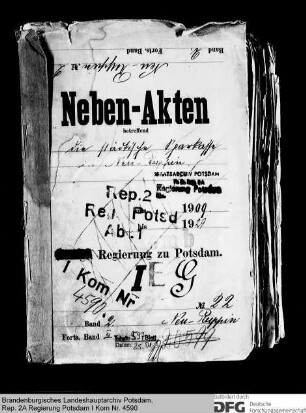 Forts. Band
Band 2
Neu-Ruppin № 2
Neben-Akten
betreffend
die städtische Sparkasse
in Neu-Ruppin.
STAATSARCHIV POTSDAM
Regierung Potsdam
Rep. 2
Reg. Potsd
Abt. I
1909
bis
19
Regierung zu Potsdam.
I E G
I Kom Nr
4590
№ 22
Band 2
Neu-Ruppin
Forts. Band
Brandenburgisches Landeshauptarchiv Potsdam,
Rep. 2A Regierung Potsdam I Kom Nr. 4590
Gefördert durch
DFG Deutsche
Forschungsgemeinschaft